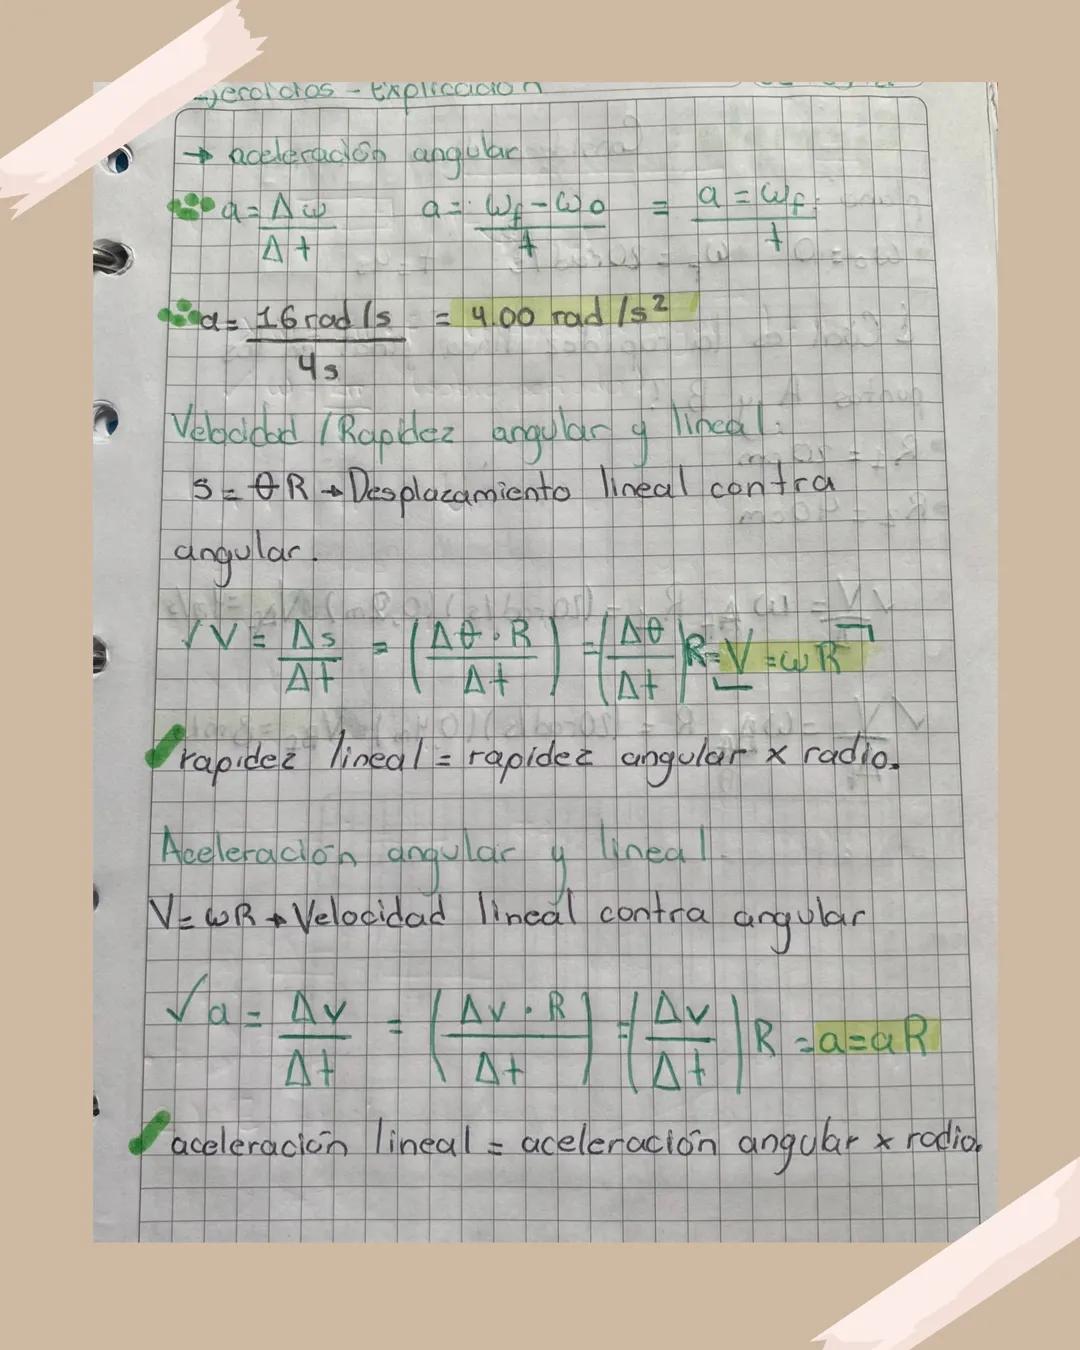 Ejercicios - Explicación
→ aceleración angular
a = Δω / Δt    a = ωf - ω0 / t = a = ωf / t
a = 16 rad/s / 4s = 4.00 rad/s²
Velocidad / Rapidez angular y lineal.
s = θR → Desplazamiento lineal contra
angular.
√ V = Δs / Δt = (Δθ · R / Δt) = (Δθ / Δt) R = V = ωR
rapidez lineal = rapidez angular x radio.
Aceleración angular y lineal
V = ωR → Velocidad lineal contra angular
√ a = Δv / Δt = (Δv · R / Δt) = (Δv / Δt) R = a = aR
aceleración lineal = aceleración angular x radio.